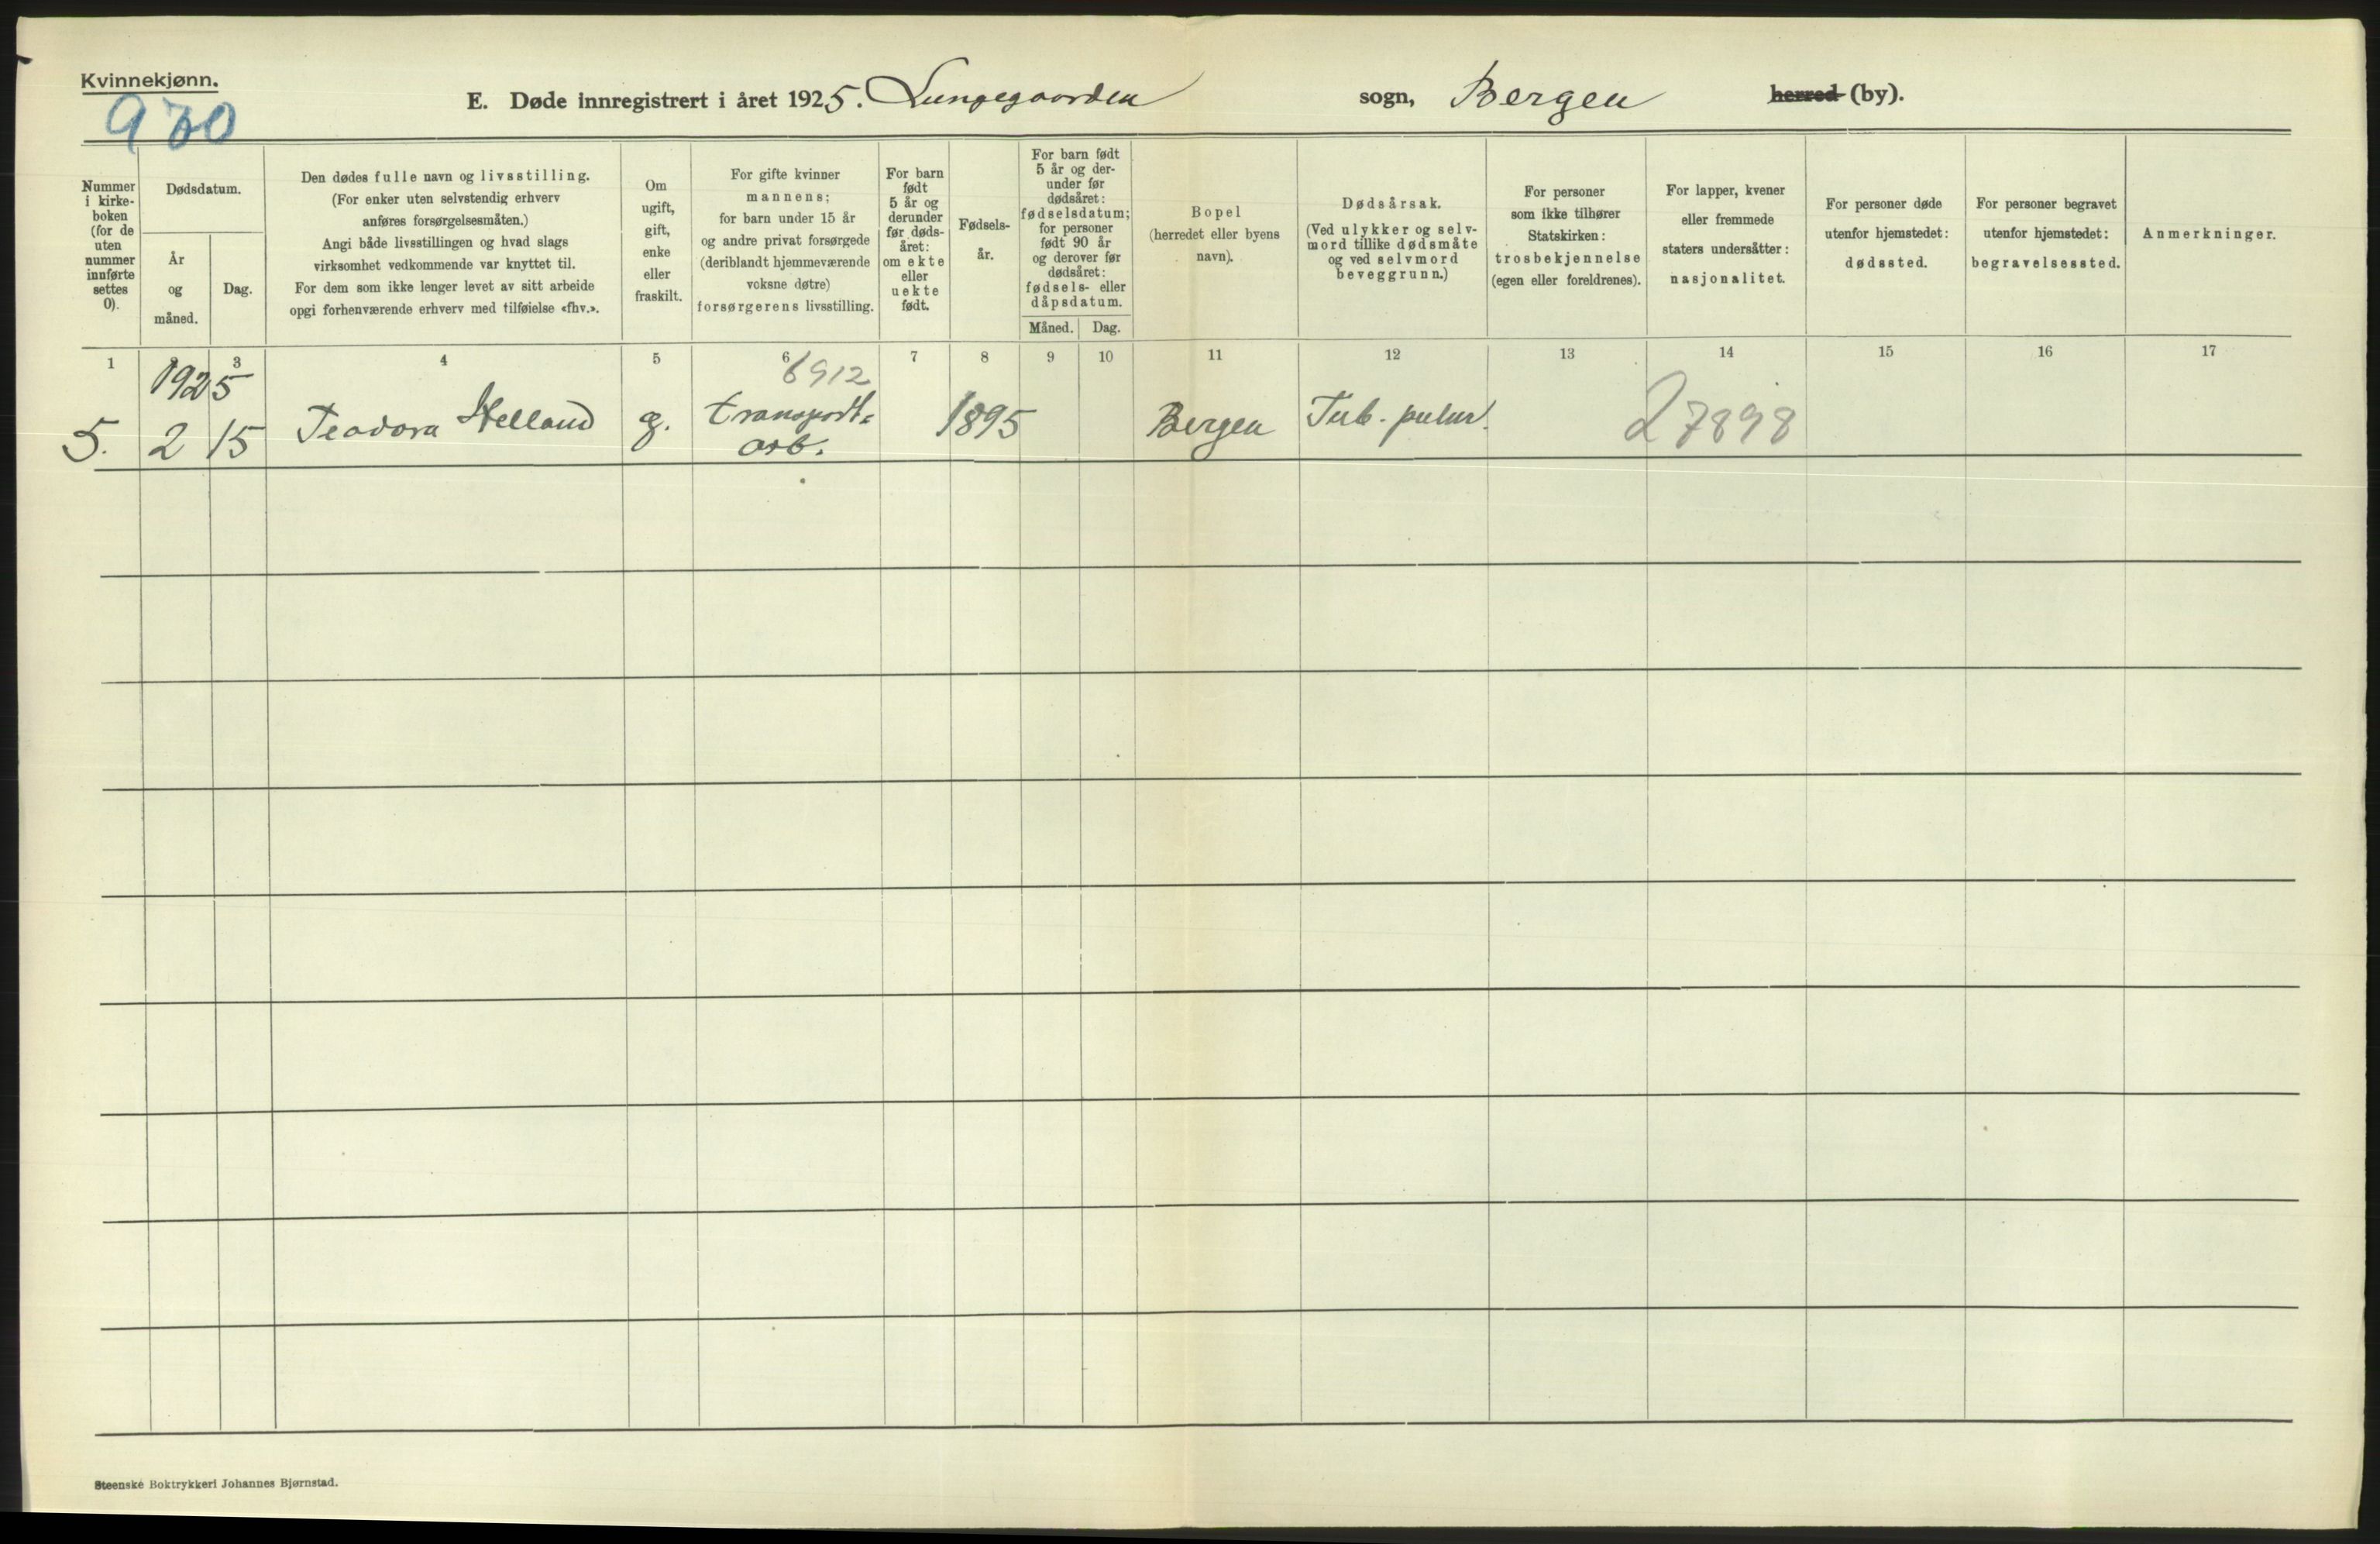 Kvinnekjønn.
E. Døde innregistrert i året 1925. Lungegaarden sogn, Bergen herred (by).
Nummer
i kirke-
boken
(for de
uten
nummer
innførte
settes
0).
Dødsdatum.
År
og
måned.
Dag.
Den dødes fulle navn og livsstilling.
(For enker uten selvstendig erhverv
anføres forsørgelsesmåten.)
Angi både livsstillingen og hvad slags
virksomhet vedkommende var knyttet til.
For dem som ikke lenger levet av sitt arbeide
opgi forhenværende erhverv med tilføielse «fhv.».
Om
ugift,
gift,
enke
eller
fraskilt.
For gifte kvinner
mannens;
for barn under 15 år
og andre privat forsørgede
(deriblandt hjemmeværende
voksne døtre)
forsørgerens livsstilling.
For barn
født
5 år og
derunder
før døds-
året:
om ekte
eller
uekte
født.
Fødsels-
år.
For barn født
5 år og der-
under før
dødsåret:
fødselsdatum;
for personer
født 90 år
og derover før
dødsåret:
fødsels- eller
dåpsdatum.
Måned. Dag.
Bopel
(herredet eller byens
navn).
Dødsårsak.
(Ved ulykker og selv-
mord tillike dødsmåte
og ved selvmord
beveggrunn.)
For personer
som ikke tilhører
Statskirken:
trosbekjennelse
(egen eller foreldrenes).
For lapper, kvener
eller fremmede
staters undersåtter:
nasjonalitet.
For personer døde
utenfor hjemstedet:
dødssted.
For personer begravet
utenfor hjemstedet:
begravelsessted.
Anmerkninger.
1 2 3 4 5 6 7 8 9 10 11 12 13 14 15 16 17
1925 6912
5. 2 15 Teodora Helland g. transport- 1895 Bergen Tub. pulm. 27898
arb.
Steenske Boktrykkeri Johannes Bjørnstad.